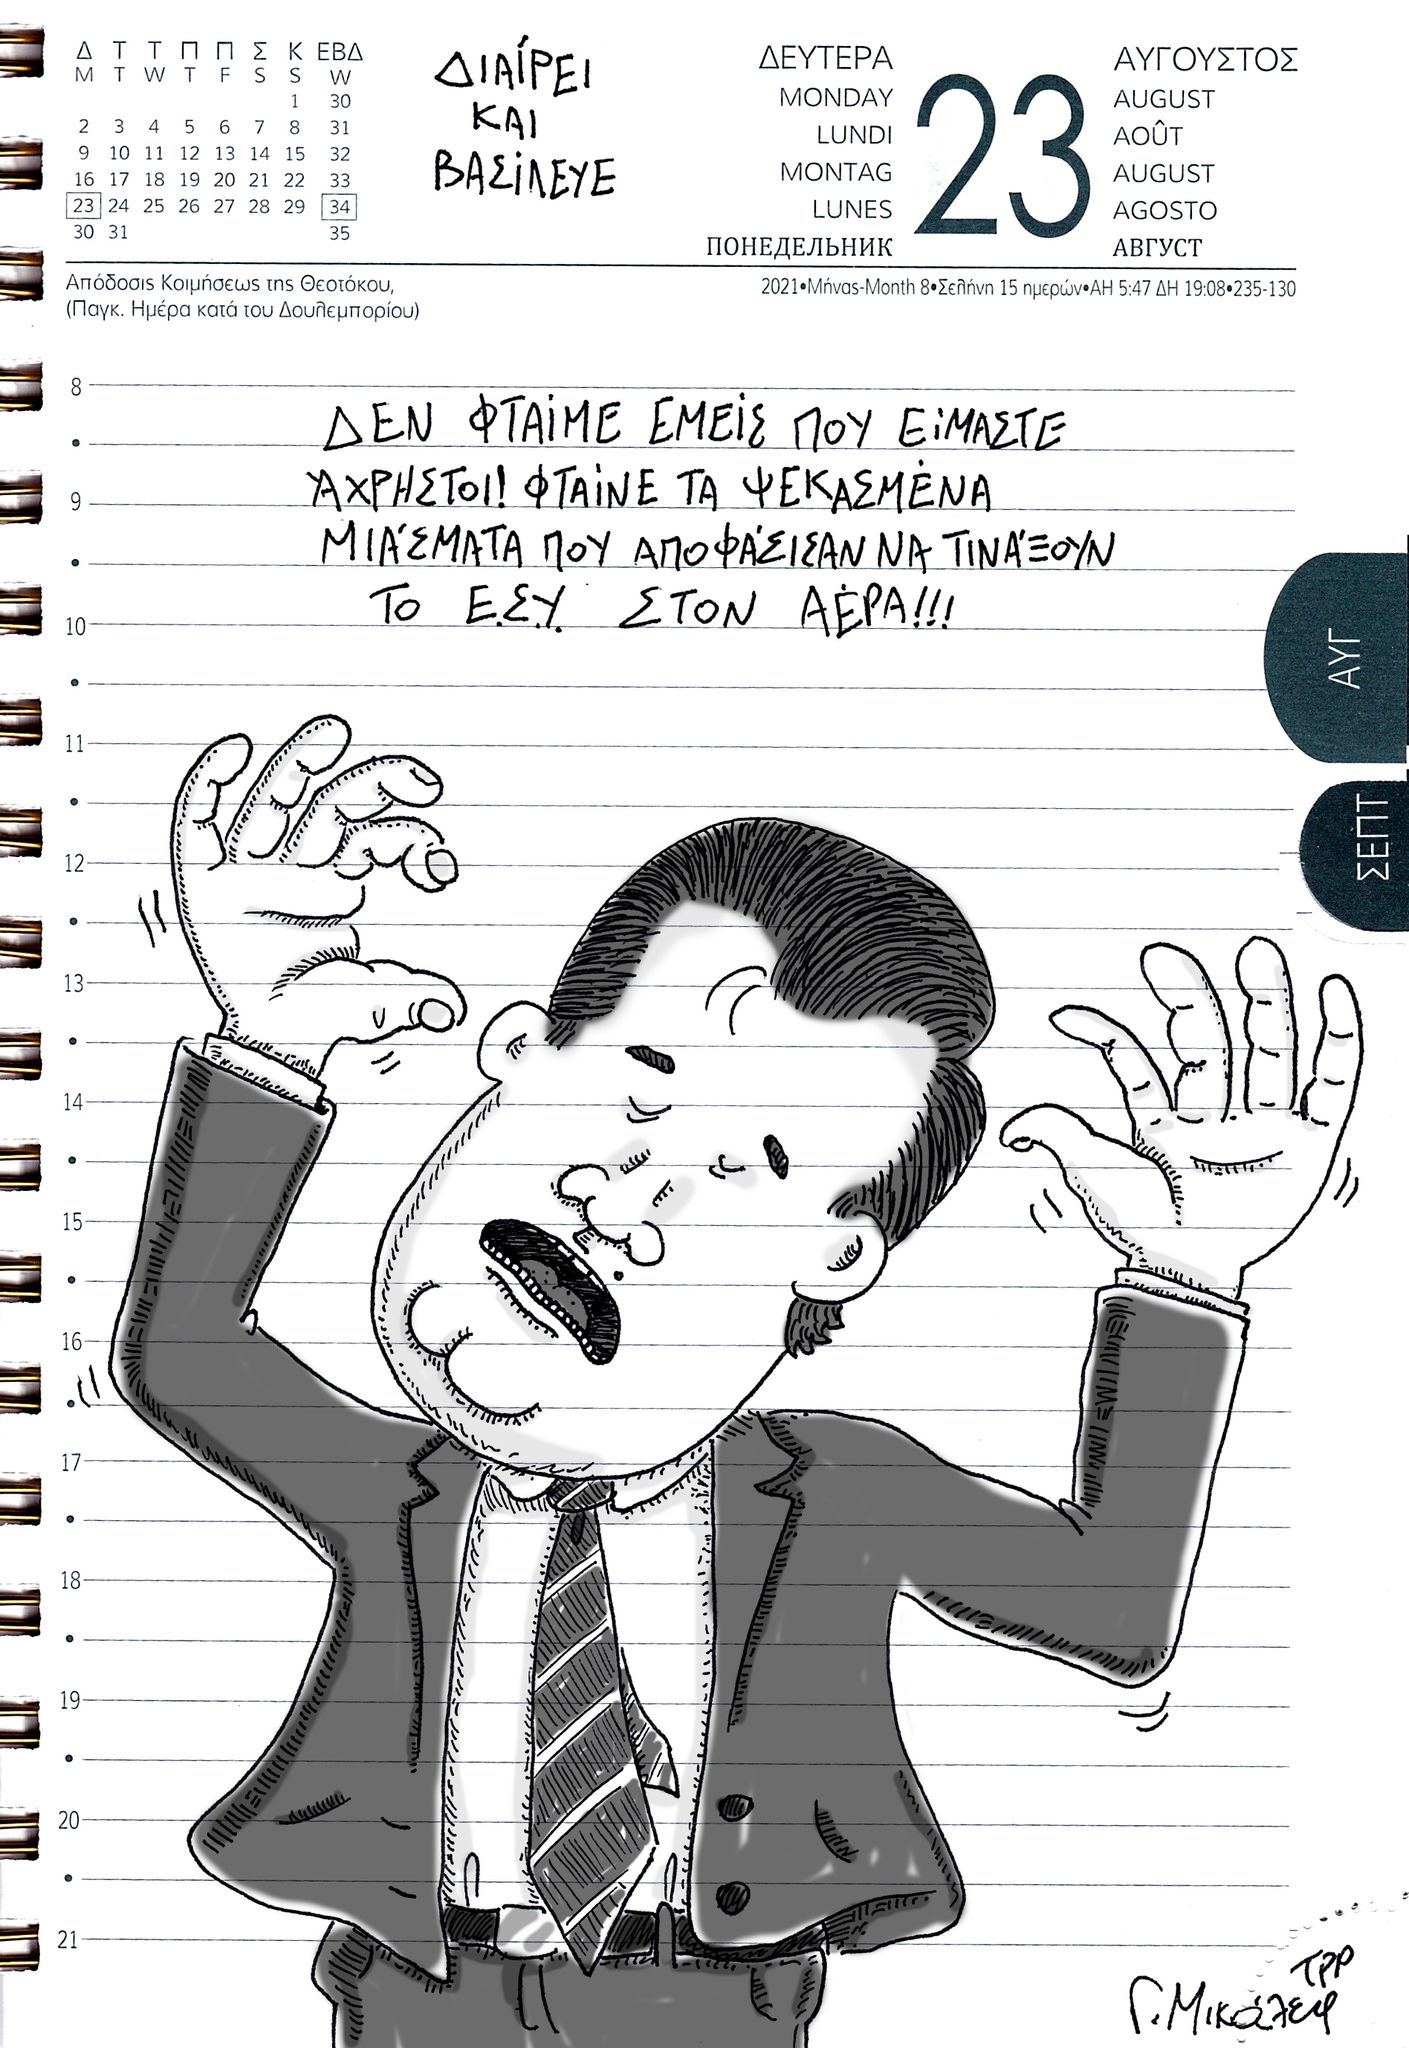 Δ Τ Τ Π Π Σ Κ ΕΒΔ
M T W T F S S W
1 30
2 3 4 5 6 7 8 31
9 10 11 12 13 14 15 32
16 17 18 19 20 21 22 33
23 24 25 26 27 28 29 34
30 31 35
ΔΙΑΊΡΕΙ
ΚΑΙ
ΒΑΣΊΛΕΥΕ
ΔΕΥΤΕΡΑ
MONDAY
LUNDI
MONTAG
LUNES
ПОНЕДЕЛЬНИК
23
ΑΥΓΟΥΣΤΟΣ
AUGUST
AOÛT
AUGUST
AGOSTO
АВГУСТ
Απόδοσις Κοιμήσεως της Θεοτόκου,
(Παγκ. Ημέρα κατά του Δουλεμπορίου)
2021•Μήνας-Month 8•Σελήνη 15 ημερών•ΑΗ 5:47 ΔΗ 19:08•235-130
8
ΔΕΝ ΦΤΑΊΜΕ ΕΜΕΊΣ ΠΟΥ ΕΊΜΑΣΤΕ
ΆΧΡΗΣΤΟΙ! ΦΤΑΊΝΕ ΤΑ ΨΕΚΑΣΜΈΝΑ
9
ΜΙΆΣΜΑΤΑ ΠΟΥ ΑΠΟΦΆΣΙΣΑΝ ΝΑ ΤΙΝΆΞΟΥΝ
ΤΟ Ε.Σ.Υ. ΣΤΟΝ ΑΈΡΑ!!!
10
ΑΥΓ
11
ΣΕΠΤ
12
13
14
15
16
17
18
19
20
21
TPP
Γ. Μικάλεφ